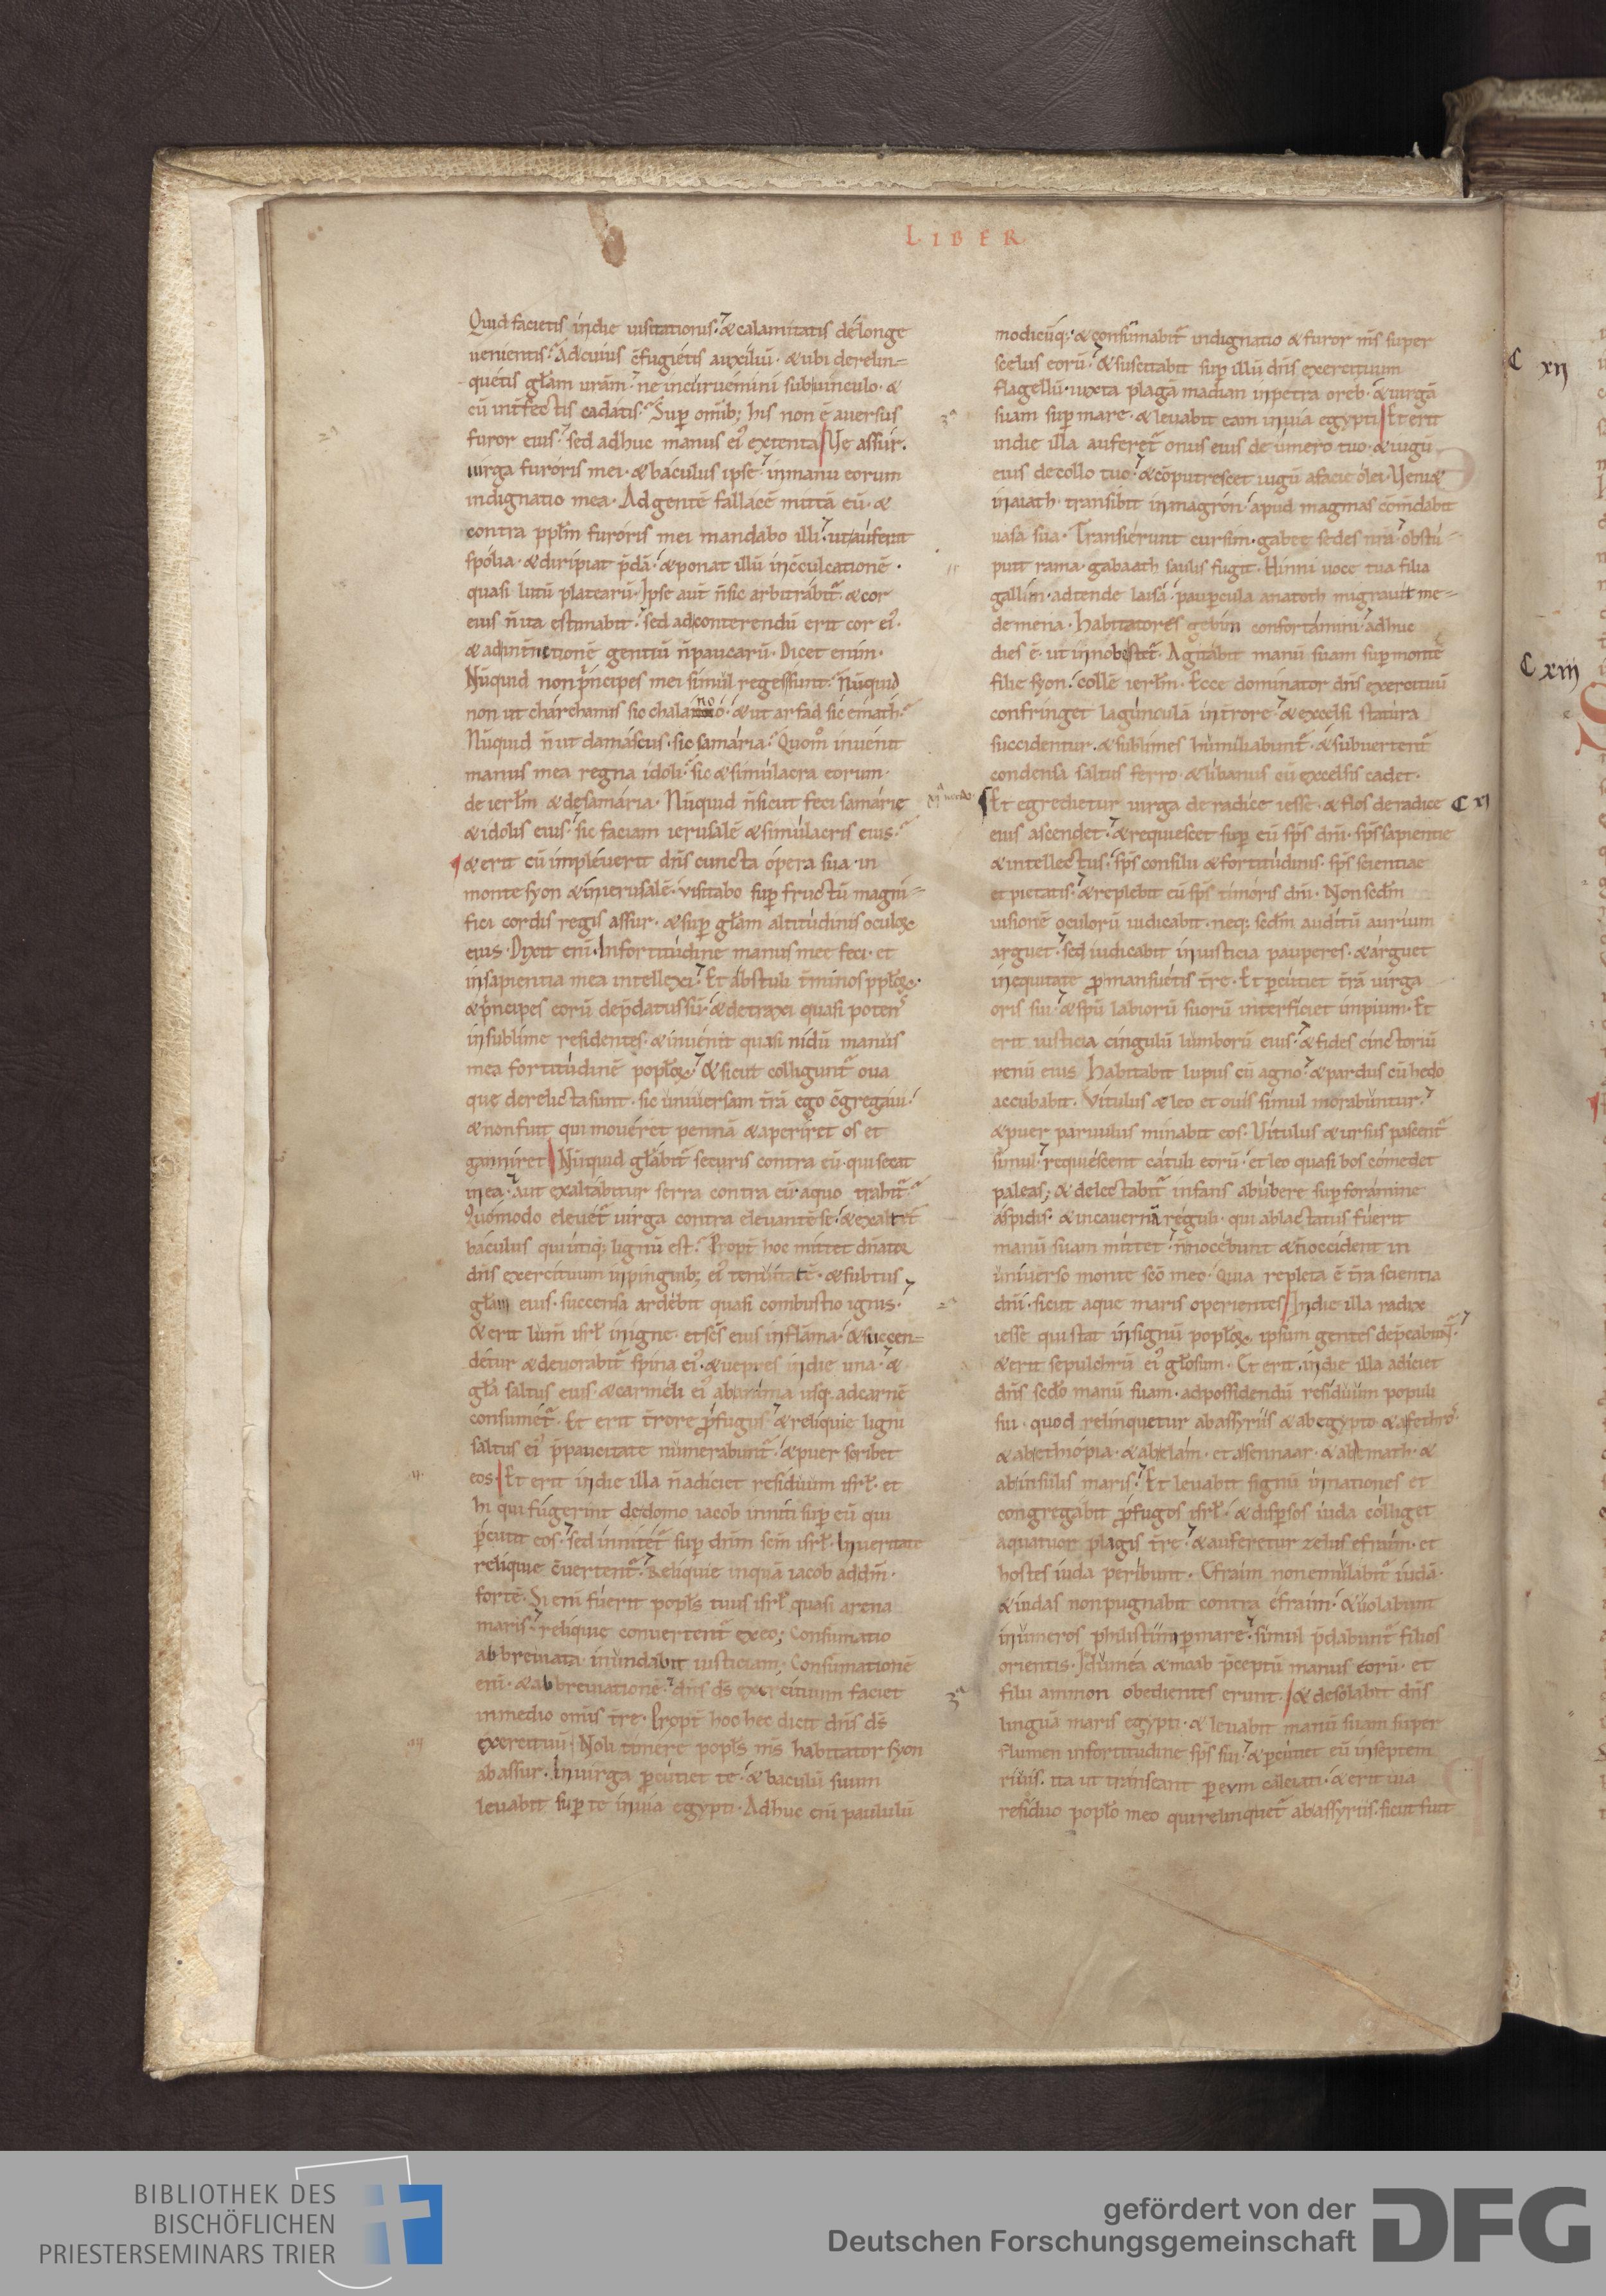 LIBER
Quid facietis in die uisitationis· & calamitatis de longe
uenientis· Ad cuius c̄fugietis auxiliū· & ubi derelin=
quetis gl̄am ur̄am· ne incuruemini sub uinculo· &
cū int̄fectis cadatis· Sup̄ om̄ib; his non ē auersus
furor eius· sed adhuc manus ei' extenta Ve assur.
uirga furoris mei· & baculus ipse· in manu eorum
indignatio mea· Ad gentē fallacē mittā eū· &
contra pp̄lm furoris mei mandabo illi· ut auferat
spolia· & diripiat p̄dā· & ponat illū in c̄culcationē·
quasi lutū platearū· Ipse aut̄ n̄ sic arbitrabit̄· & cor
eius n̄ ita estimabit· sed ad conterendū erit cor ei'·
& ad int̄netionē gentiū n̄ paucarū· Dicet enim·
Nūquid non p̄ncipes mei simul reges sunt· Nūquid
non ut charchamis sic chalanno· & ut arfad sic emath·
Nūquid n̄ ut damascus· sic samaria· Quom̄ inuenit
manus mea regna idoli· sic & simulacra eorum·
de ierl̄m & de samaria· Nūquid n̄ sicut feci samarię
& idolis eius· sic faciam ierusalē & simulacris eius·
& erit cū impleuerit dn̄s cuncta opera sua· in
monte syon & in ierusalē· uisitabo sup̄ fructū magni=
fici cordis regis assur· & sup̄ gl̄am altitudinis oculoꝝ
eius· Dixit eni· In fortitudine manus mee feci· et
in sapientia mea intellexi· Et abstuli t̄minos pp̄loꝝ·
& p̄ncipes eorū dep̄datus sū· & detraxi quasi poten̄s
in sublime residentes· & inuenit quasi nidū manus
mea fortitudinē popl̄oꝝ· & sicut colligunt̄ oua
que derelicta sunt· sic uniuersam t̄rā ego c̄gregaui·
& non fuit qui moueret pennā & aperiret os et
ganniret Nūquid gl̄abit̄ securis contra eū· qui secat
in ea· Aut exaltabitur serra contra eū· a quo trahit̄
Quomodo eleuet̄ uirga contra eleuantē se· & exaltet̄
baculus qui utiq; lignū est· Propt̄ hoc mittet dn̄ator
dn̄s exercituum in pinguib; ei' tenuitatē· & subtus
gl̄am eius· succensa ardebit quasi combustio ignis·
& erit lum̄ isrl̄ in igne· et sc̄s eius in flāma· & succen=
detur & deuorabit̄ spina ei'· & uepres in die una· &
gl̄a saltus eius· & carmeli ei' ab anima usq; ad carnē
consumet̄· Et erit t̄rore p̄fugus· & reliquie ligni
saltus ei' p̄ paucitate numerabunt̄· & puer scribet
eos Et erit in die illa n̄ adiciet residuum isrl̄· et
hi qui fugerint de domo iacob inniti sup̄ eū qui
p̄cutit eos· sed innitet̄ sup̄ dn̄m sc̄m isrl̄· In ueritate
reliquie c̄uertent̄· Reliquie inquā iacob ad dm̄·
fortē· Si eni fuerit popl̄s tuus isrl̄ quasi arena
maris· reliquie conuertent̄ ex eo; Consumatio
abbreuiata inundabit iusticiam· Consumationē
eni· & abbreuiationē· dn̄s ds̄ exercituum faciet
in medio om̄is t̄re· Propt̄ hoc hec dicit dn̄s ds̄
exercituū· Noli timere popl̄s m̄s habitator syon
ab assur· In uirga p̄cutiet te· & baculū suum
leuabit sup̄ te in uia egypti· Adhuc eni paululū
modicūq;· & consūmabit̄ indignatio & furor m̄s super
scelus eorū· & suscitabit sup̄ illū dn̄s exercituum
flagellū· iuxta plagā madian in petra oreb· & uirgā
suam sup̄ mare· & leuabit eam in uia egypti Et erit
in die illa auferet̄ onus eius de umero tuo· & iugū
eius de collo tuo· & cōputrescet iugū a facie olei· Veni&
in aiath· transibit in magron· apud magmas cōmdabit
uasa sua· Transierunt cursim· gabee sedes n̄ra· obstu=
puit rama· gabaath saulis fugit· Hinni uoce tua filia
gallim· adtende laisa· paup̄cula anatoth migrauit me=
demena· habitatores gebim confortamini· adhuc
dies ē· ut in nobe stet̄· Agitabit manū suam sup̄ montē
filie syon· collē ierl̄m· Ecce dominator dn̄s exercituū
confringet lagunculā in t̄rore· & excelsi statura
succidentur· & sublimes humiliabunt̄· & subuertent̄
condensa saltus ferro· & libanus cū excelsis cadet·
Et egredietur uirga de radice iesse· & flos de radice
C xi
eius ascendet· & requiescet sup̄ eū sp̄s dn̄i· sp̄s sapientie
& intellectus· sp̄s consilii & fortitudinis· sp̄s scientiae
et pietatis· & replebit eū sp̄s timoris dn̄i· Non sec̄dm
uisionē oculorū iudicabit· neq; sec̄dm auditū aurium
arguet· sed iudicabit in iusticia pauperes· & arguet
in equitate p̄ mansuetis t̄re· Et p̄cutiet t̄rā uirga
oris sui· & spū labiorū suorū interficiet impium· Et
erit iusticia cingulū lumborū eius· & fides cinctoriū
renū eius Habitabit lupus cū agno· & pardus cū hedo
accubabit· Vitulus & leo et ouis simul morabuntur·
& puer paruulus minabit eos· Vitulus & ursus pascent̄
simul· requiescent catuli eorū· et leo quasi bos comedet
paleas; & delectabit̄ infans ab ubere sup̄ foramine
aspidis· & in cauernā reguli· qui ablactatus fuerit
manū suam mittet· n̄ nocebunt & n̄ occident in
uniuerso monte sc̄o meo· Quia repleta ē t̄ra scientia
dn̄i· sicut aque maris operientes In die illa radix
iesse qui stat in signū popl̄oꝝ· ipsum gentes dep̄cabunt̄·
& erit sepulchrū ei' gl̄osum· Et erit in die illa adiciet
dn̄s sec̄do manū suam· ad possidendū residuum populi
sui· quod relinquetur ab assyriis & ab egypto & a fethros·
& ab ethiopia· & ab elam· et a sennaar· & ab emath· &
ab insulis maris· Et leuabit signū in nationes et
congregabit p̄fugos isrl̄· & disp̄sos iuda colliget
a quatuor plagis t̄re· & auferetur zelus efraim· et
hostes iuda peribunt· Efraim non emulabit̄ iudā·
& iudas non pugnabit contra efraim· & uolabunt
in umeros philistiim p̄ mare· simul p̄dabunt̄ filios
orientis· Idumea & moab p̄ceptū manus eorū· et
filii ammon obedientes erunt· & desolabit dn̄s
linguā maris egypti· & leuabit manū suam super
flumen in fortitudine sp̄s sui· & p̄cutiet eū in septem
riuis· ita ut transeant p̄ eum calciati· & erit uia
residuo popl̄o meo qui relinquet̄ ab assyriis· sicut fuit
C xij
C xiij
BIBLIOTHEK DES
BISCHÖFLICHEN
PRIESTERSEMINARS TRIER
gefördert von der
Deutschen Forschungsgemeinschaft
DFG